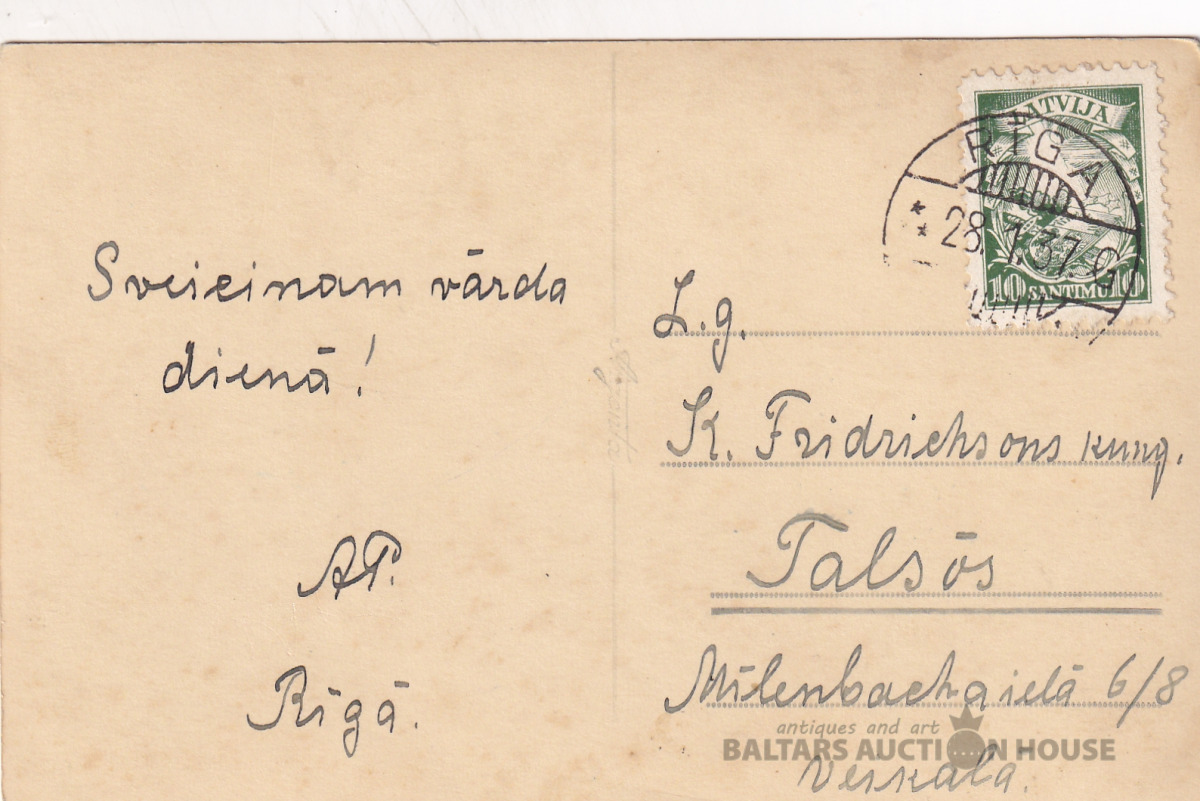 Sveicinam vārda
dienā!
AP.
Rīgā.
LATVIJA
RĪGA
28.1.37. G
10 SANTIMU 10
L.g.
K. Fridrichsons kung.
Talsōs
Mīlenbacha ielā 6/8
veikalā.
antiques and art
BALTARS AUCTION HOUSE